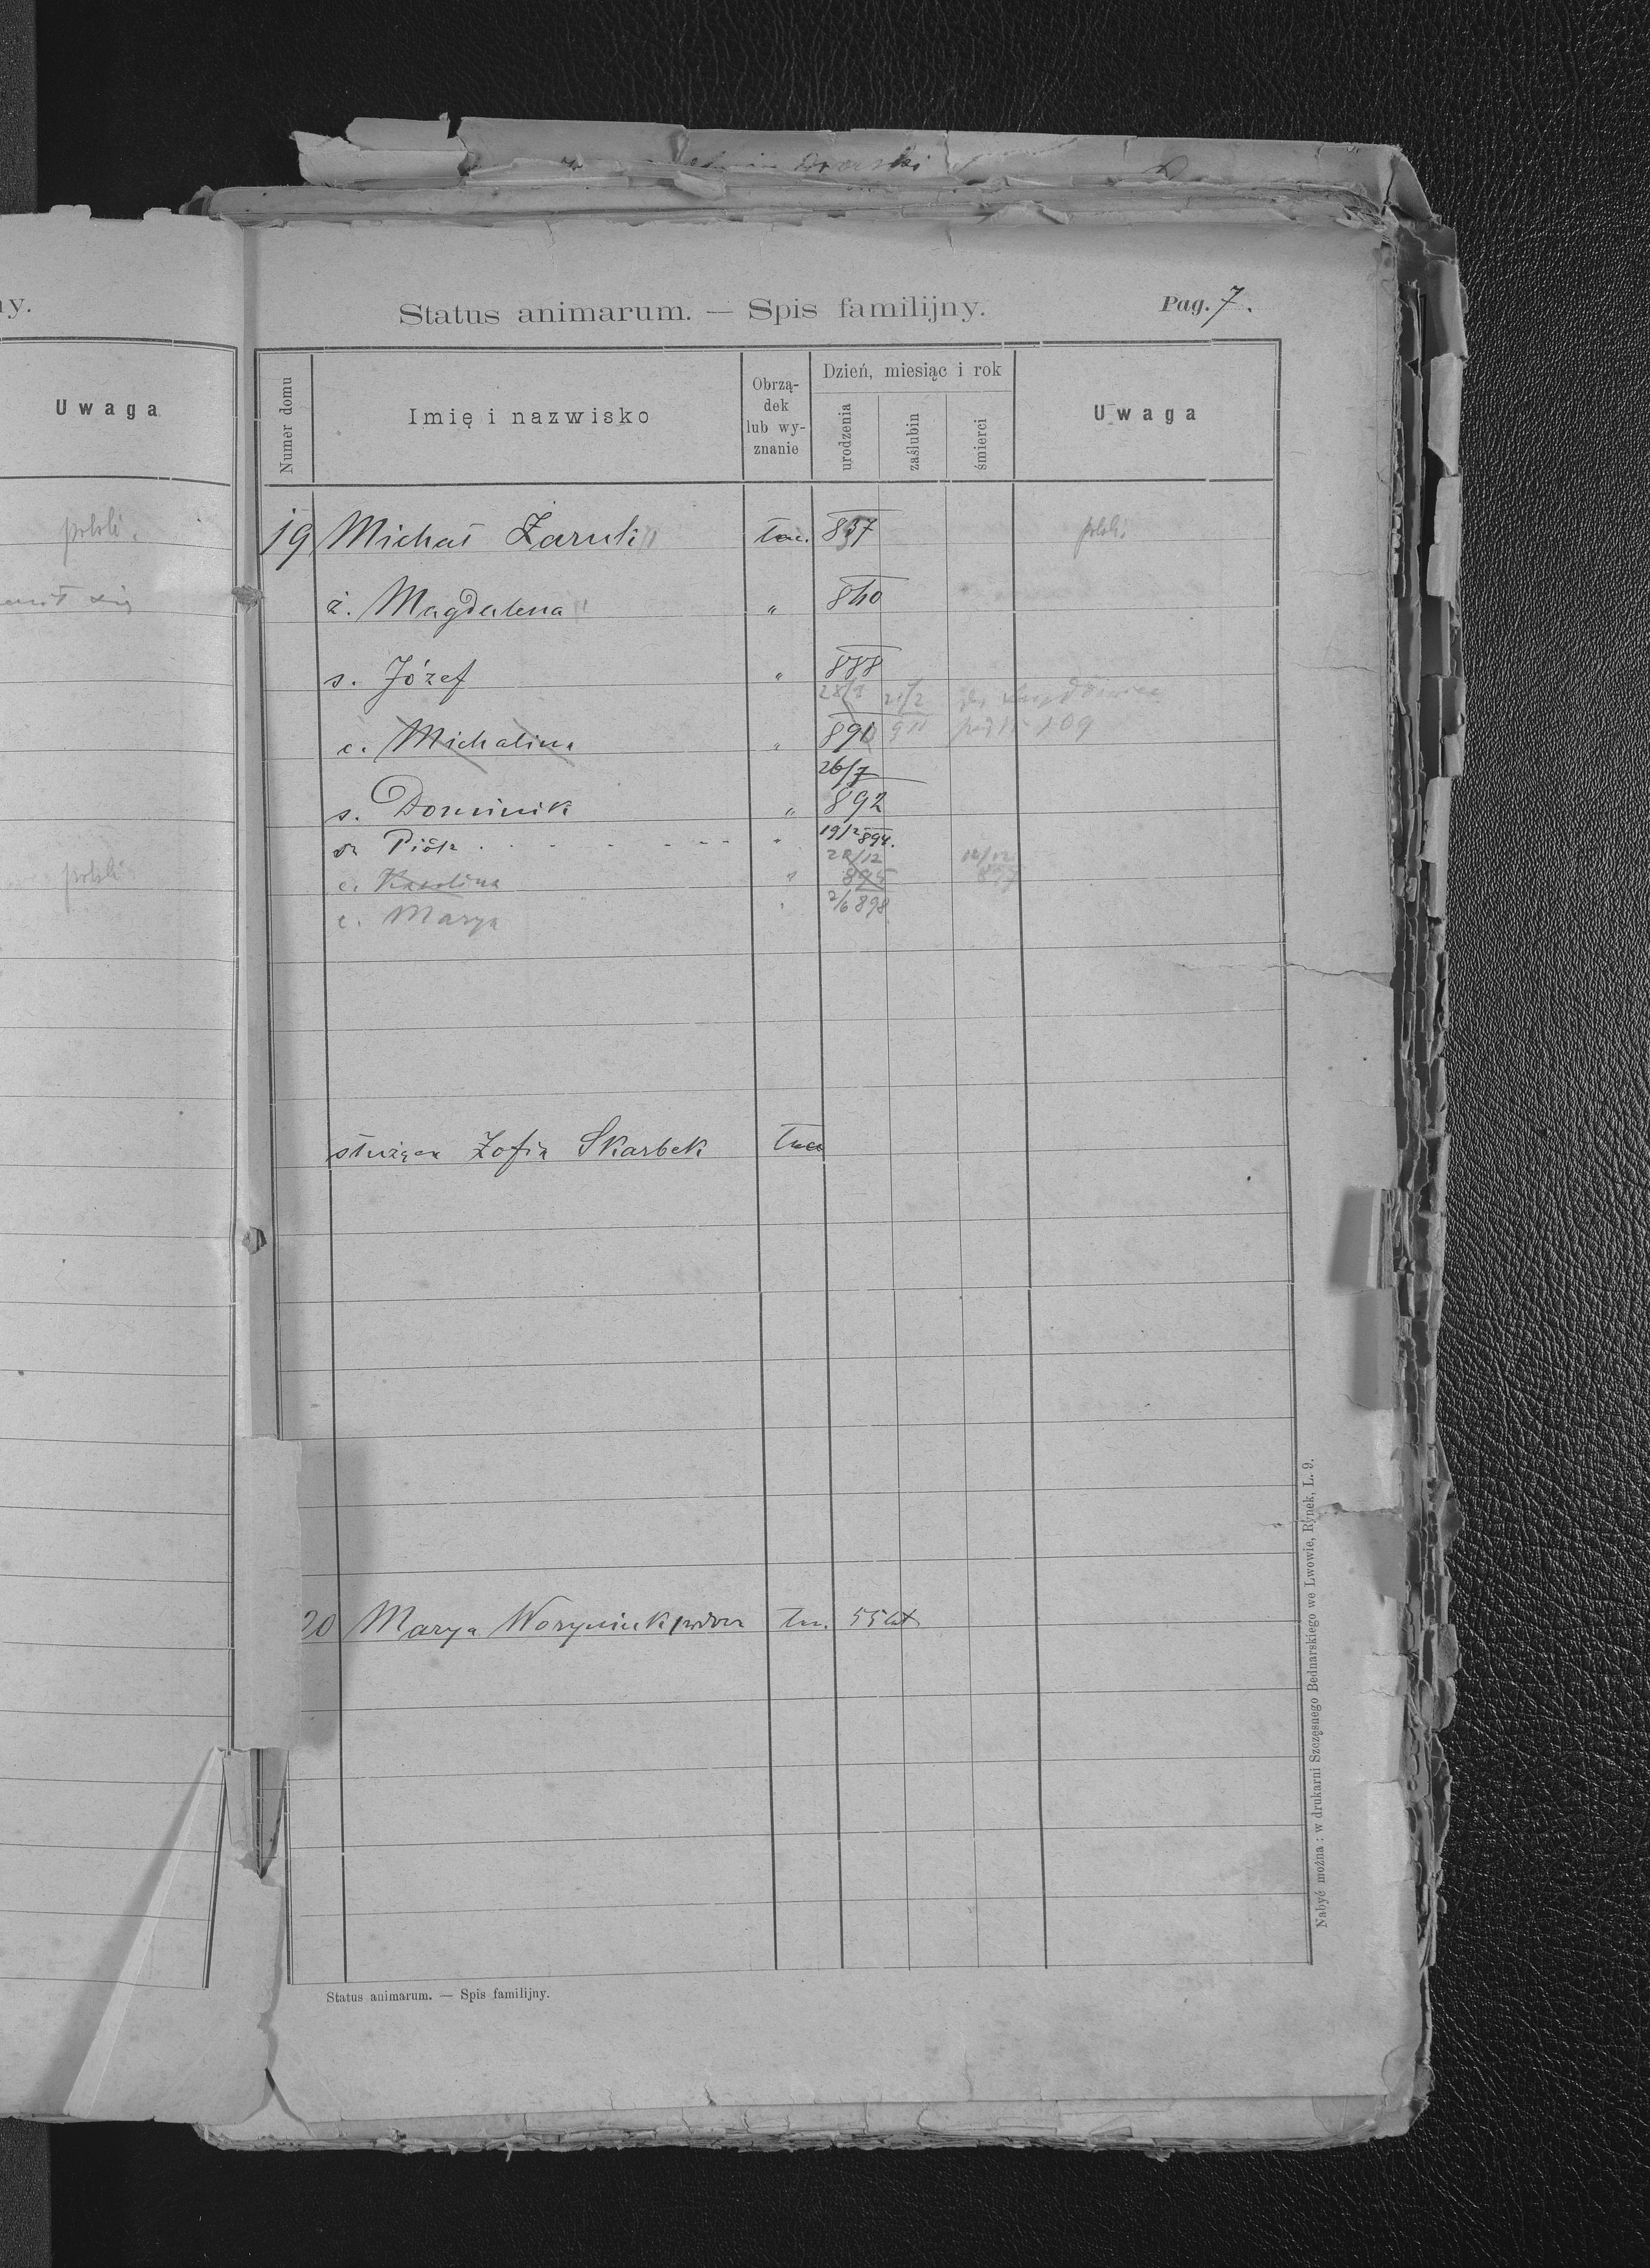 ny.
Uwaga
polski.
polski
Status animarum. — Spis familijny.
Pag. 7.
Numer domu
Imię i nazwisko
Obrzą-
dek
lub wy-
znanie
Dzień, miesiąc i rok
urodzenia
zaślubin
śmierci
Uwaga
19 Michał Żaruk łac. 837 polski
ż. Magdalena " 840
s. Józef " 888
28/9 21/2
c. Michalina " 890 911 109
26/7
s. Dominik " 892
s. Piotr " 19/2 894.
28/12 12/12
c. Karolina " 895 897
c. Marya " 2/6 898
służąca Zofia Skarbek łac
20 Marya Woryniuk wdowa łac. 55 lat
Status animarum. — Spis familijny.
Nabyć można: w drukarni Szczęsnego Bednarskiego we Lwowie, Rynek, L. 9.